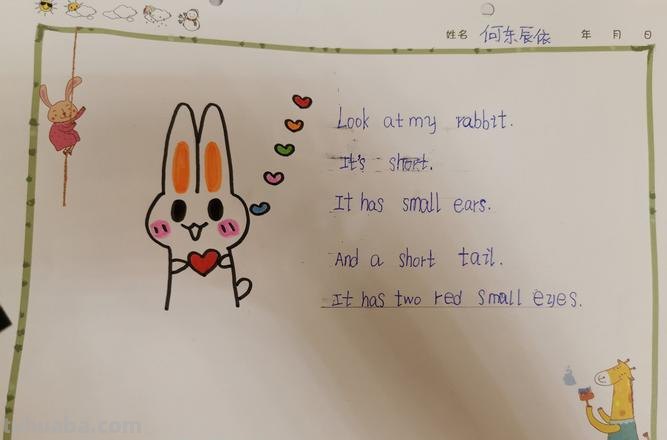 姓名 何东辰依 年 月 日
Look at my rabbit.
It's short.
It has small ears.
And a short tail.
It has two red small eyes.